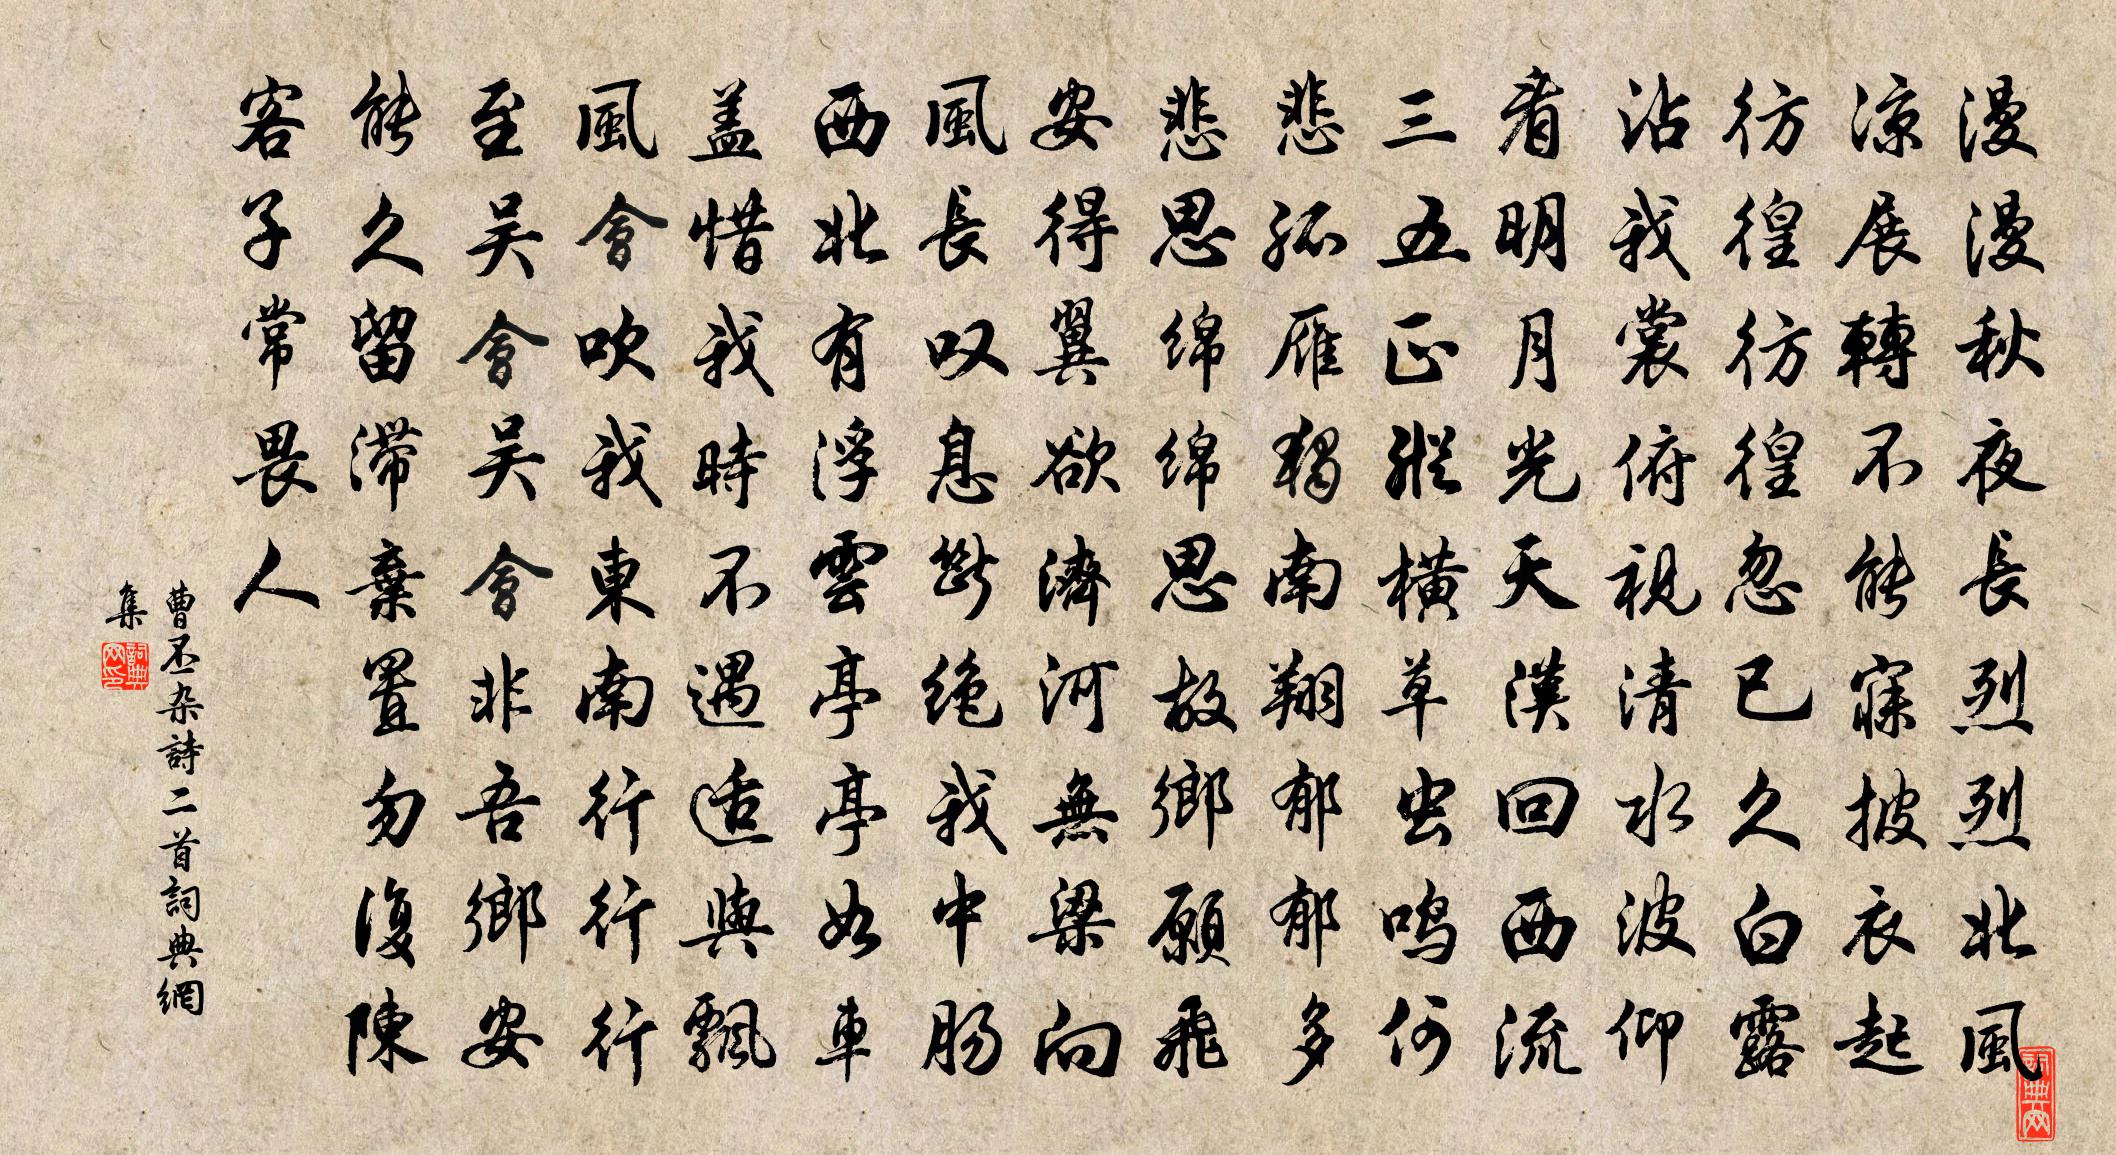 漫漫秋夜長烈烈北風
凉展轉不能寐披衣起
彷徨彷徨忽已久白露
沾我裳俯視清水波仰
看明月光天漢回西流
三五正縱橫草虫鳴何
悲孤雁獨南翔郁郁多
悲思绵绵思故鄉願飛
安得翼欲濟河無梁向
風長叹息斷绝我中肠
西北有浮雲亭亭如車
盖惜我時不遇适與飄
風會吹我東南行行行
至吴會吴會非吾鄉安
能久留滞棄置勿復陳
客子常畏人
曹丕杂詩二首詞典網
集
詞典网印
詞典网